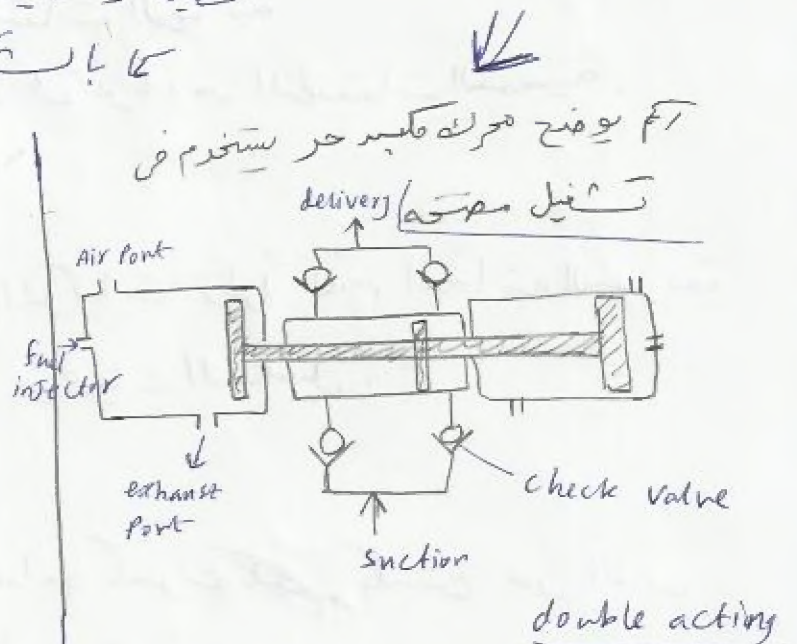 كما بالش
رسم يوضح محرك مكبس حر يستخدم في
تشغيل مضخه
delivery
Air Port
fuel
injector
exhaust
Port
check valve
suction
double acting